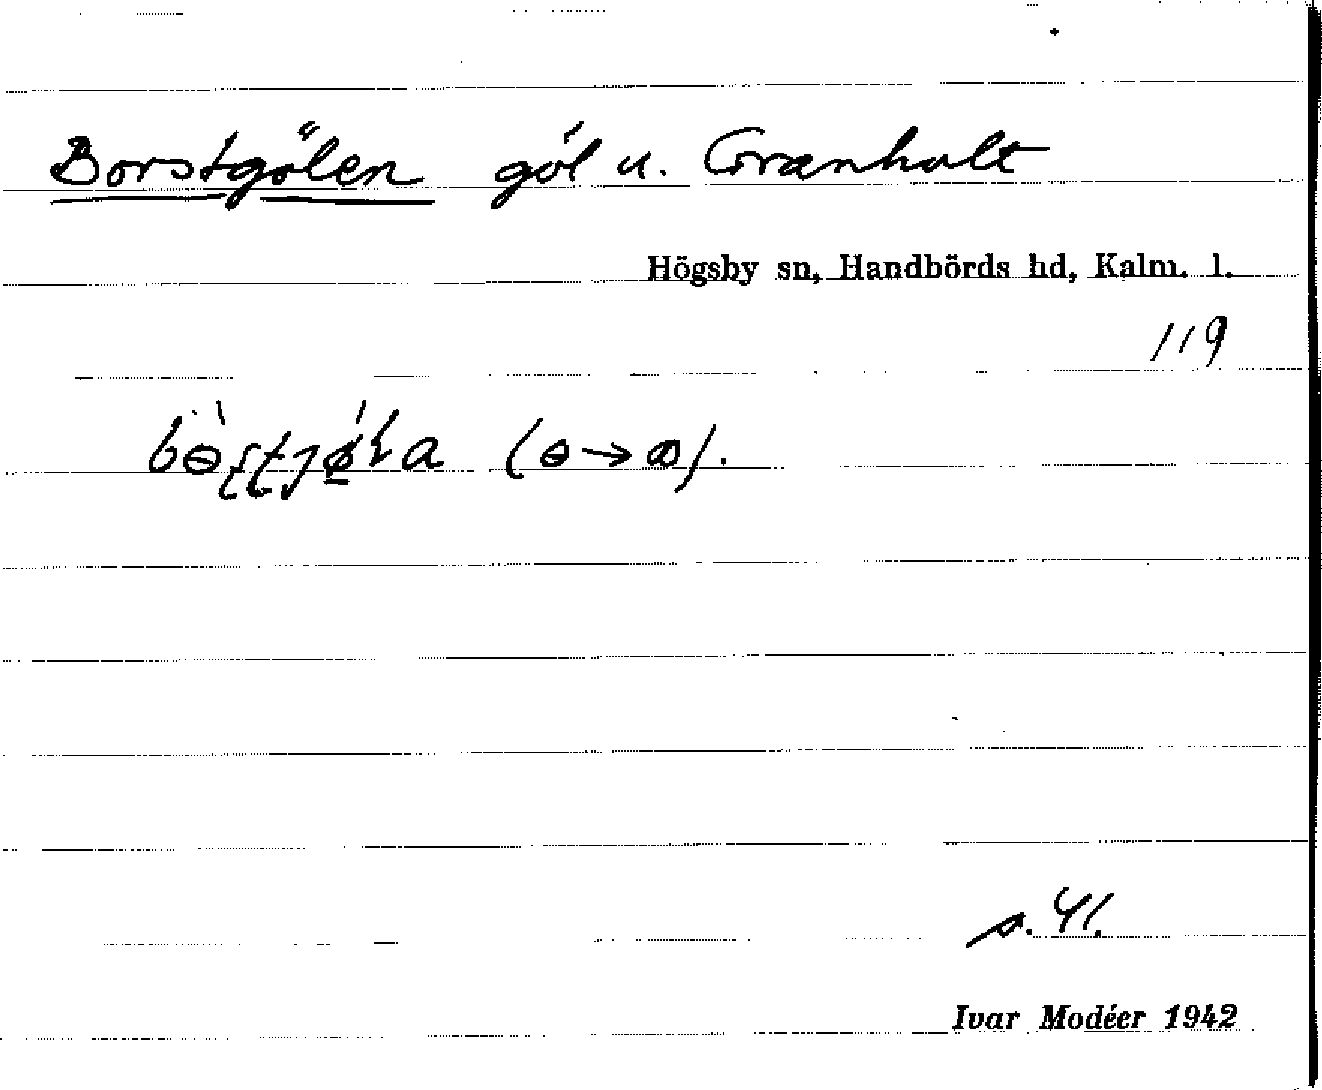 Borstgölen göl u. Granhult
Högsby sn, Handbörds hd, Kalm. l.
119
(ɵ→ꚙ).
s. 41.
Ivar Modéer 1942